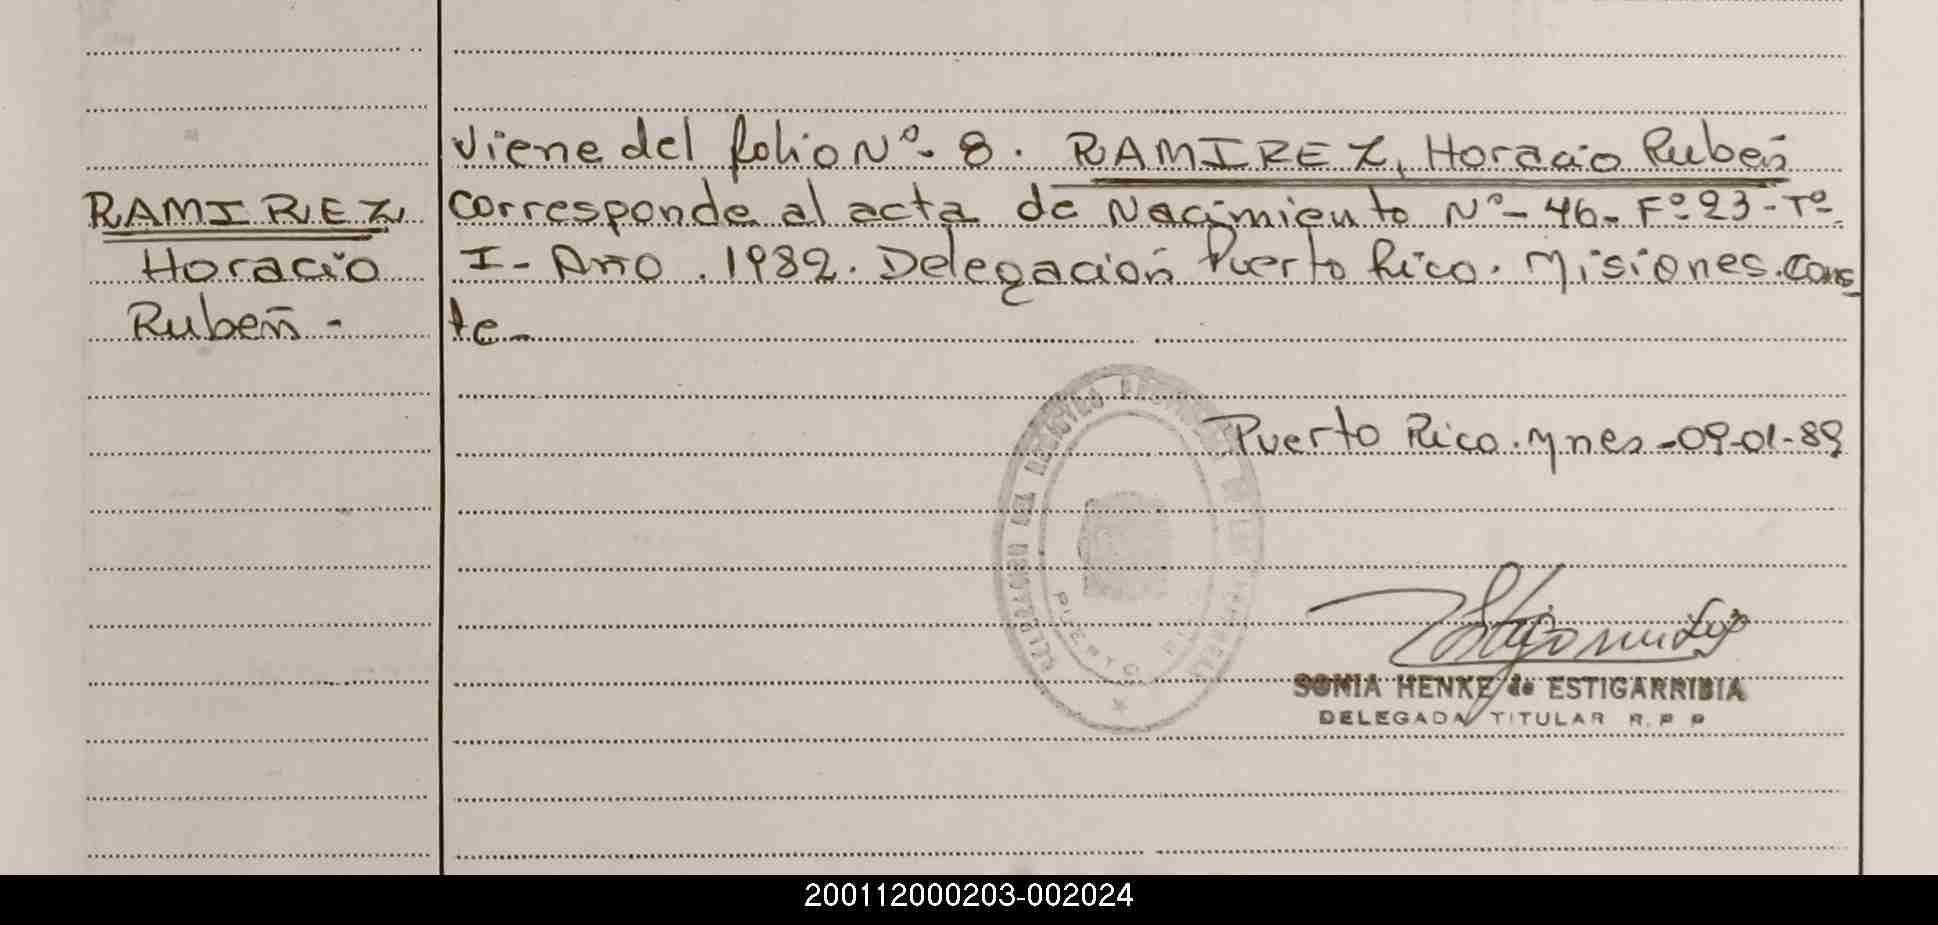 Viene del folio Nº- 8. RAMIREZ, Horacio Rubén
RAMIREZ
Horacio
Rubén -
corresponde al acta de Nacimiento Nº- 46- Fº 23- Tº-
I- Año. 1982. Delegación Puerto Rico. Misiones. Cons
te-
Puerto Rico. Mnes -09-01-89
PUERTO
SONIA HENKE de ESTIGARRIBIA
DELEGADA TITULAR R. P. P
200112000203-002024